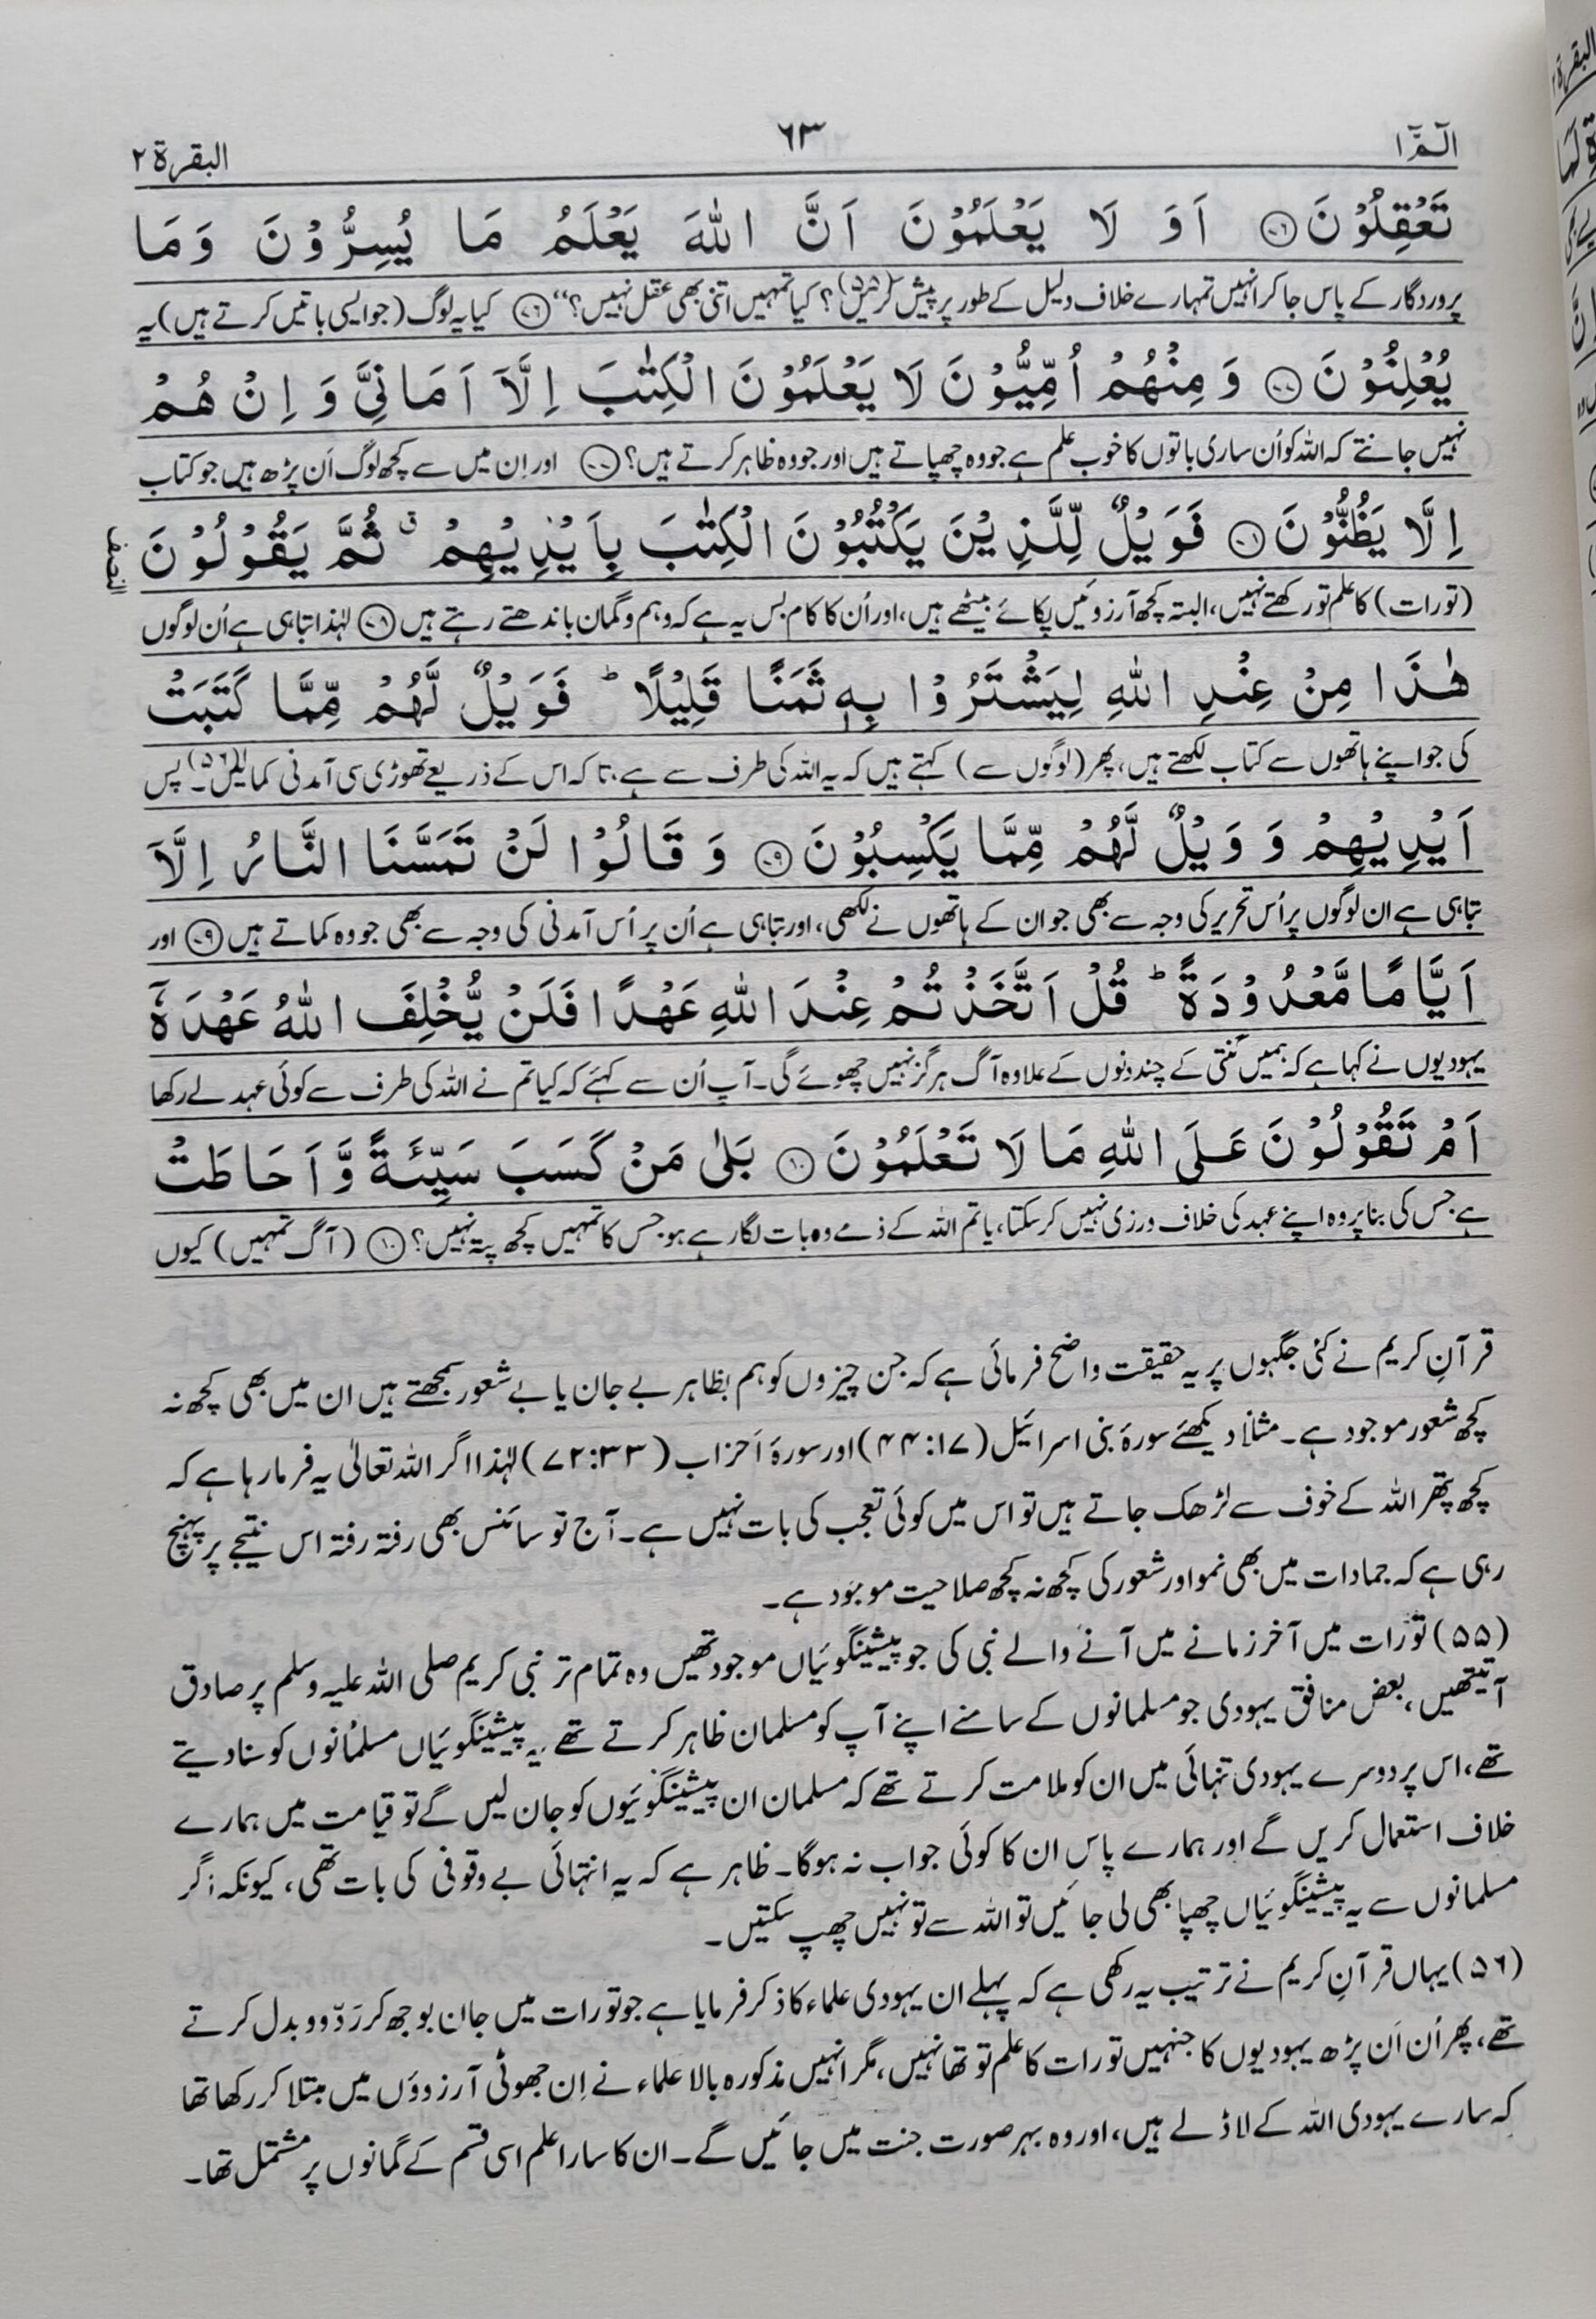 الٓـمّٓ ١
٦٣
البقرة ٢
تَعْقِلُوْنَ ﴿۷۶﴾ اَوَ لَا يَعْلَمُوْنَ اَنَّ اللّٰهَ يَعْلَمُ مَا يُسِرُّوْنَ وَمَا
پروردگار کے پاس جا کر انہیں تمہارے خلاف دلیل کے طور پر پیش کریں؟(۵۵) کیا تمہیں اتنی بھی عقل نہیں؟“ ﴿۷۶﴾ کیا یہ لوگ (جو ایسی باتیں کرتے ہیں) یہ
يُعْلِنُوْنَ ﴿۷۷﴾ وَ مِنْهُمْ اُمِّيُّوْنَ لَا يَعْلَمُوْنَ الْكِتٰبَ اِلَّاۤ اَمَانِيَّ وَ اِنْ هُمْ
نہیں جانتے کہ اللہ کو اُن ساری باتوں کا خوب علم ہے جو وہ چھپاتے ہیں اور جو وہ ظاہر کرتے ہیں؟ ﴿۷۷﴾ اور اِن میں سے کچھ لوگ اَن پڑھ ہیں جو کتاب
اِلَّا يَظُنُّوْنَ ﴿۷۸﴾ فَوَيْلٌ لِّلَّذِيْنَ يَكْتُبُوْنَ الْكِتٰبَ بِاَيْدِيْهِمْ ۗ ثُمَّ يَقُوْلُوْنَ
النصف
(تورات) کا علم تو رکھتے نہیں، البتہ کچھ آرزوئیں پکائے بیٹھے ہیں، اور اُن کا کام بس یہ ہے کہ وہم و گمان باندھتے رہتے ہیں ﴿۷۸﴾ لہٰذا تباہی ہے اُن لوگوں
هٰذَا مِنْ عِنْدِ اللّٰهِ لِيَشْتَرُوْا بِهٖ ثَمَنًا قَلِيْلًا ؕ فَوَيْلٌ لَّهُمْ مِّمَّا كَتَبَتْ
کی جو اپنے ہاتھوں سے کتاب لکھتے ہیں، پھر (لوگوں سے) کہتے ہیں کہ یہ اللہ کی طرف سے ہے، تا کہ اس کے ذریعے تھوڑی سی آمدنی کما لیں۔(۵۶) پس
اَيْدِيْهِمْ وَ وَيْلٌ لَّهُمْ مِّمَّا يَكْسِبُوْنَ ﴿۷۹﴾ وَ قَالُوْا لَنْ تَمَسَّنَا النَّارُ اِلَّاۤ
تباہی ہے ان لوگوں پر اُس تحریر کی وجہ سے بھی جو ان کے ہاتھوں نے لکھی، اور تباہی ہے اُن پر اُس آمدنی کی وجہ سے بھی جو وہ کماتے ہیں ﴿۷۹﴾ اور
اَيَّامًا مَّعْدُوْدَةً ؕ قُلْ اَتَّخَذْتُمْ عِنْدَ اللّٰهِ عَهْدًا فَلَنْ يُّخْلِفَ اللّٰهُ عَهْدَهٗۤ
یہودیوں نے کہا ہے کہ ہمیں گنتی کے چند دنوں کے علاوہ آگ ہرگز نہیں چھوئے گی۔ آپ اُن سے کہئے کہ کیا تم نے اللہ کی طرف سے کوئی عہد لے رکھا
اَمْ تَقُوْلُوْنَ عَلَى اللّٰهِ مَا لَا تَعْلَمُوْنَ ﴿۸۰﴾ بَلٰى مَنْ كَسَبَ سَيِّئَةً وَّ اَحَاطَتْ
ہے جس کی بنا پر وہ اپنے عہد کی خلاف ورزی نہیں کر سکتا، یا تم اللہ کے ذمے وہ بات لگا رہے ہو جس کا تمہیں کچھ پتہ نہیں؟ ﴿۸۰﴾ (آگ تمہیں) کیوں
قرآنِ کریم نے کئی جگہوں پر یہ حقیقت واضح فرمائی ہے کہ جن چیزوں کو ہم بظاہر بے جان یا بے شعور سمجھتے ہیں ان میں بھی کچھ نہ
کچھ شعور موجود ہے۔ مثلاً دیکھئے سورۂ بنی اسرائیل (۱۷:۴۴) اور سورۂ اَحزاب (۳۳:۷۲) لہٰذا اگر اللہ تعالیٰ یہ فرما رہا ہے کہ
کچھ پتھر اللہ کے خوف سے لڑھک جاتے ہیں تو اس میں کوئی تعجب کی بات نہیں ہے۔ آج تو سائنس بھی رفتہ رفتہ اس نتیجے پر پہنچ
رہی ہے کہ جمادات میں بھی نمو اور شعور کی کچھ نہ کچھ صلاحیت موجود ہے۔
(۵۵) تورات میں آخر زمانے میں آنے والے نبی کی جو پیشینگوئیاں موجود تھیں وہ تمام تر نبی کریم صلی اللہ علیہ وسلم پر صادق
آتی تھیں، بعض منافق یہودی جو مسلمانوں کے سامنے اپنے آپ کو مسلمان ظاہر کرتے تھے یہ پیشینگوئیاں مسلمانوں کو سنا دیتے
تھے، اس پر دوسرے یہودی تنہائی میں ان کو ملامت کرتے تھے کہ مسلمان ان پیشینگوئیوں کو جان لیں گے تو قیامت میں ہمارے
خلاف استعمال کریں گے اور ہمارے پاس ان کا کوئی جواب نہ ہوگا۔ ظاہر ہے کہ یہ انتہائی بے وقوفی کی بات تھی، کیونکہ اگر
مسلمانوں سے یہ پیشینگوئیاں چھپا بھی لی جائیں تو اللہ سے تو نہیں چھپ سکتیں۔
(۵۶) یہاں قرآنِ کریم نے ترتیب یہ رکھی ہے کہ پہلے ان یہودی علماء کا ذکر فرمایا ہے جو تورات میں جان بوجھ کر رَدّ و بدل کرتے
تھے، پھر اُن اَن پڑھ یہودیوں کا جنہیں تورات کا علم تو تھا نہیں، مگر انہیں مذکورہ بالا علماء نے اِن جھوٹی آرزوؤں میں مبتلا کر رکھا تھا
کہ سارے یہودی اللہ کے لاڈلے ہیں، اور وہ بہر صورت جنت میں جائیں گے۔ ان کا سارا علم اسی قسم کے گمانوں پر مشتمل تھا۔